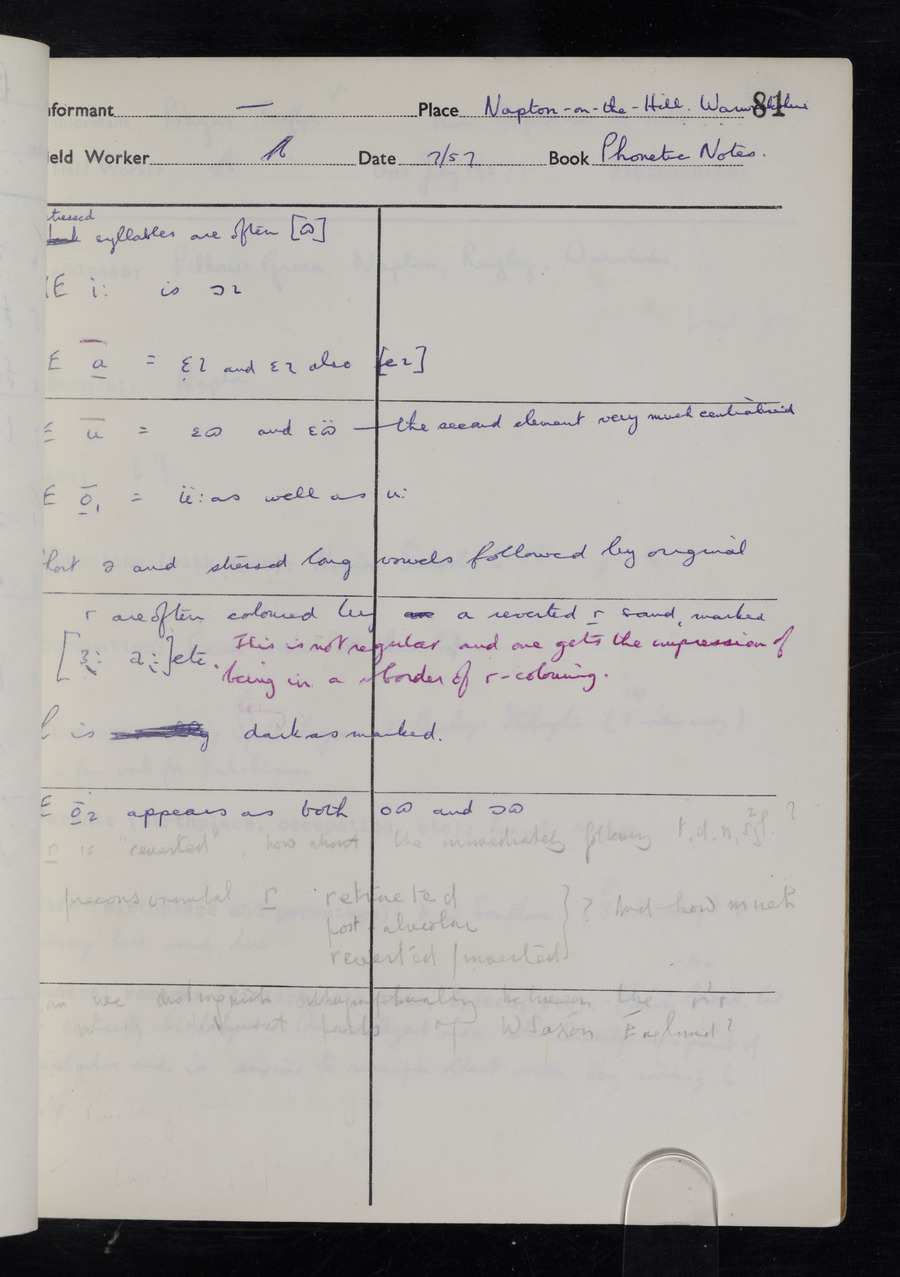 nformant — Place Napton-on-the-Hill. Warwickshire 81
ield Worker Date 7/57 Book Phonetic Notes.
stressed
syllables are often [ɷ]
E i: is ɔɩ
E ā = ɛ̣ɩ and ɛɩ also [eɩ]
E ū = ɛɷ and ɛɷ̈ — the second element very much centralised
E ō₁ = ü: as well as u:
hort ə and stressed long vowels followed by original
r are often coloured by a reverted r sound, marked
[ɜ: a:] etc. This is not regular and one gets the impression of
being in a border of r-colouring.
l is dark as marked.
E ō₂ appears as both oɷ and ɔɷ
r is "reverted", how about the immediately following t, d, n, s, z, l. ?
preconsonantal r retracted
post-alveolar } ? And how much
reverted / inverted
an we distinguish orthographically between the r's
different parts of W Saxon England?